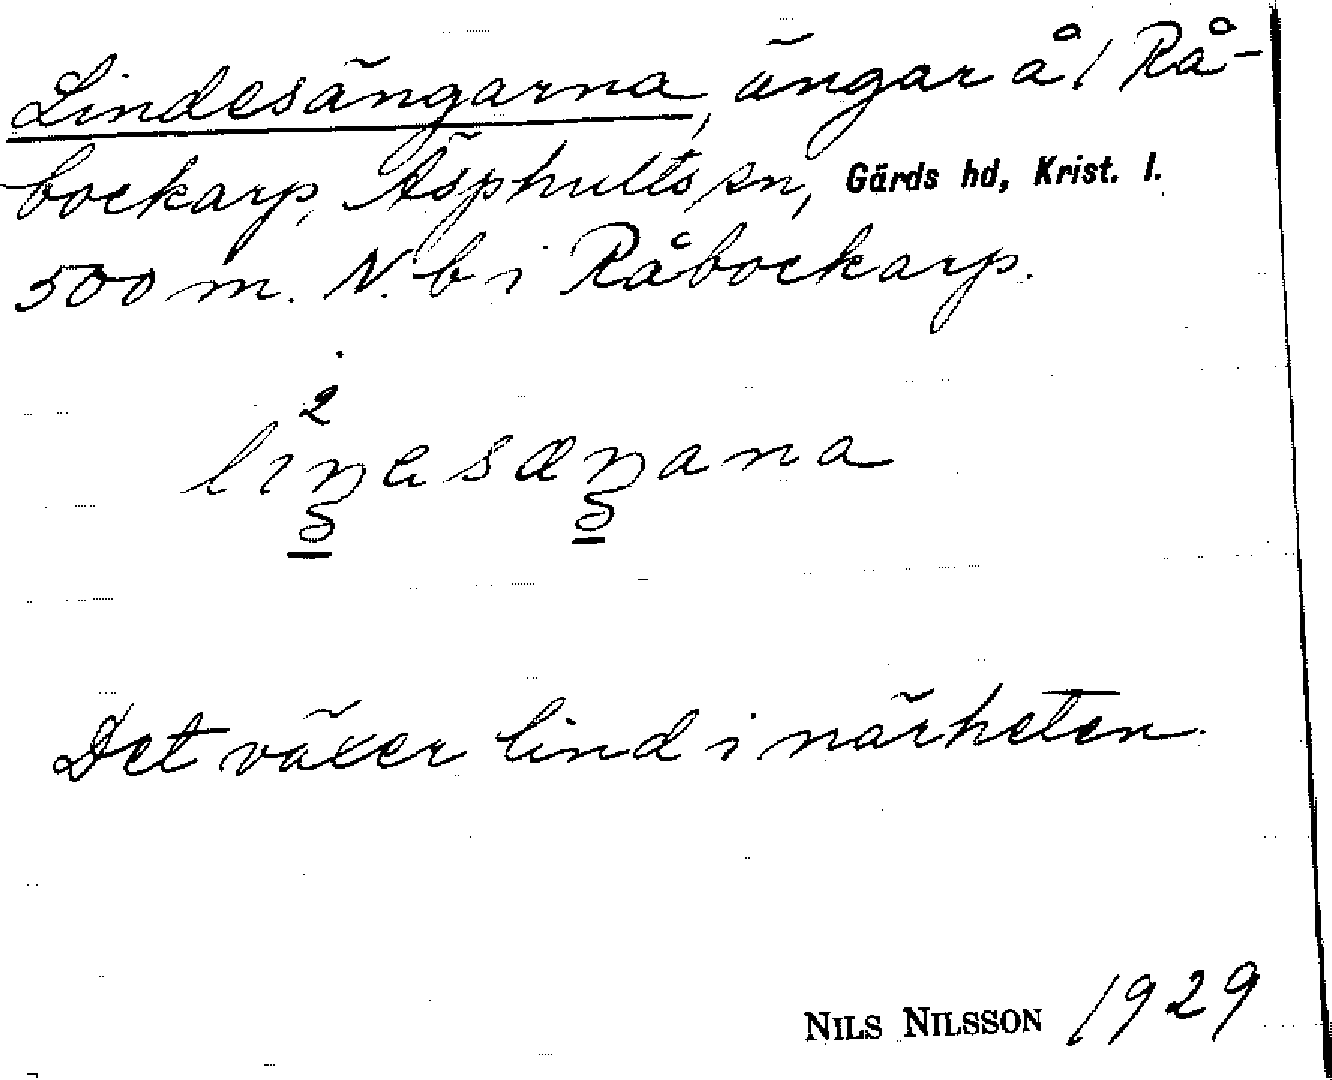 Lindesängarna, ängar å 1 Rå-
bockarp, Äsphults sn, Gärds hd, Krist. l.
500 m. N. b i Råbockarp.
2
Det växer lind i närheten.
NILS NILSSON 1929